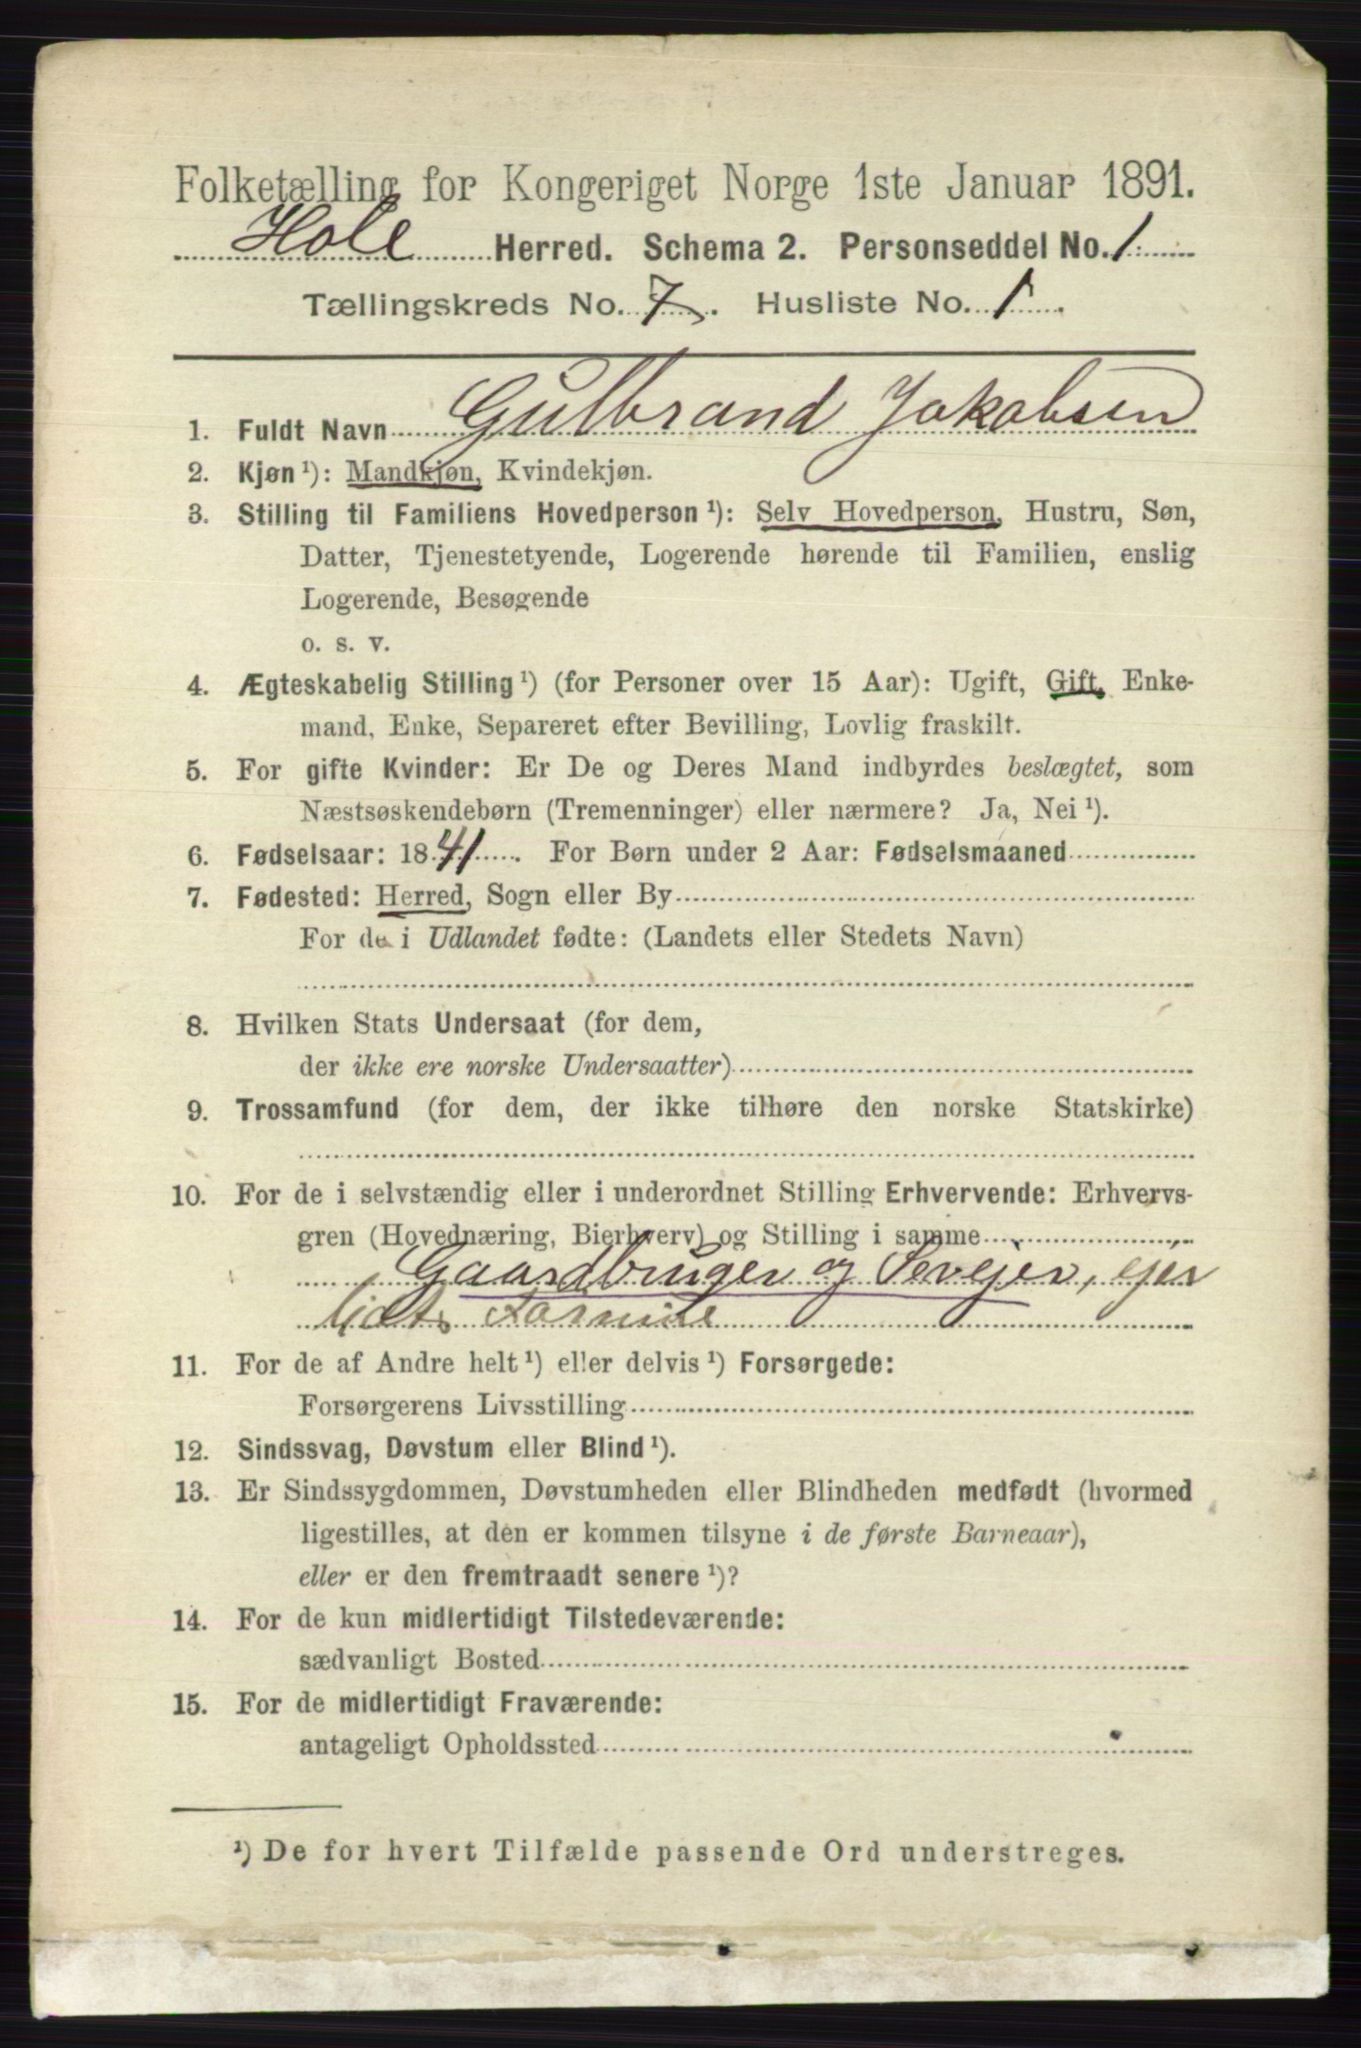 Folketælling for Kongeriget Norge 1ste Januar 1891.
Hole Herred. Schema 2. Personseddel No. 1
Tællingskreds No. 7. Husliste No. 1.
1. Fuldt Navn Gulbrand Jakobsen
2. Kjøn ¹): Mandkjøn, Kvindekjøn.
3. Stilling til Familiens Hovedperson ¹): Selv Hovedperson, Hustru, Søn,
Datter, Tjenestetyende, Logerende hørende til Familien, enslig
Logerende, Besøgende
o. s. v.
4. Ægteskabelig Stilling ¹) (for Personer over 15 Aar): Ugift, Gift, Enke-
mand, Enke, Separeret efter Bevilling, Lovlig fraskilt.
5. For gifte Kvinder: Er De og Deres Mand indbyrdes beslægtet, som
Næstsøskendebørn (Tremenninger) eller nærmere? Ja, Nei ¹).
6. Fødselsaar: 1841. For Børn under 2 Aar: Fødselsmaaned
7. Fødested: Herred, Sogn eller By
For de i Udlandet fødte: (Landets eller Stedets Navn)
8. Hvilken Stats Undersaat (for dem,
der ikke ere norske Undersaatter)
9. Trossamfund (for dem, der ikke tilhøre den norske Statskirke)
10. For de i selvstændig eller i underordnet Stilling Erhvervende: Erhvervs-
gren (Hovednæring, Bierhverv) og Stilling i samme
Gaardbruger og Selvejer, ejer
11. For de af Andre helt ¹) eller delvis ¹) Forsørgede:
Forsørgerens Livsstilling
12. Sindssvag, Døvstum eller Blind ¹).
13. Er Sindssygdommen, Døvstumheden eller Blindheden medfødt (hvormed
ligestilles, at den er kommen tilsyne i de første Barneaar),
eller er den fremtraadt senere ¹)?
14. For de kun midlertidigt Tilstedeværende:
sædvanligt Bosted
15. For de midlertidigt Fraværende:
antageligt Opholdssted
¹) De for hvert Tilfælde passende Ord understreges.